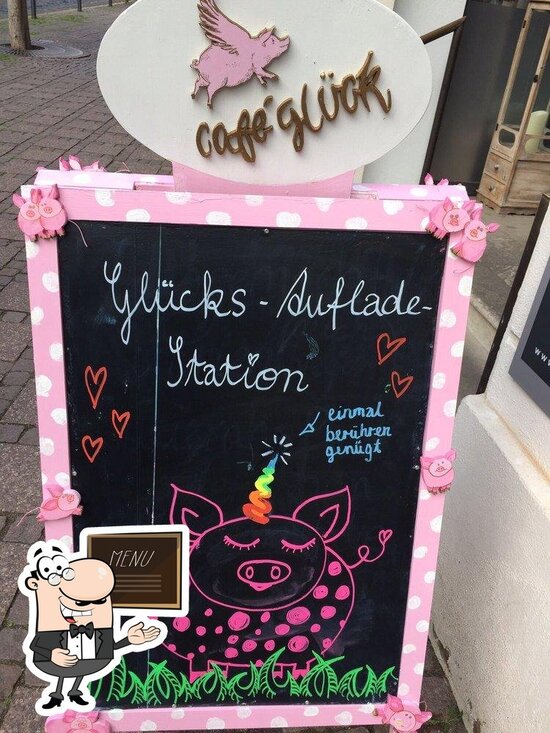 café glück
Glücks-Auflade-
Station
einmal
berühren
genügt
MENU
www.